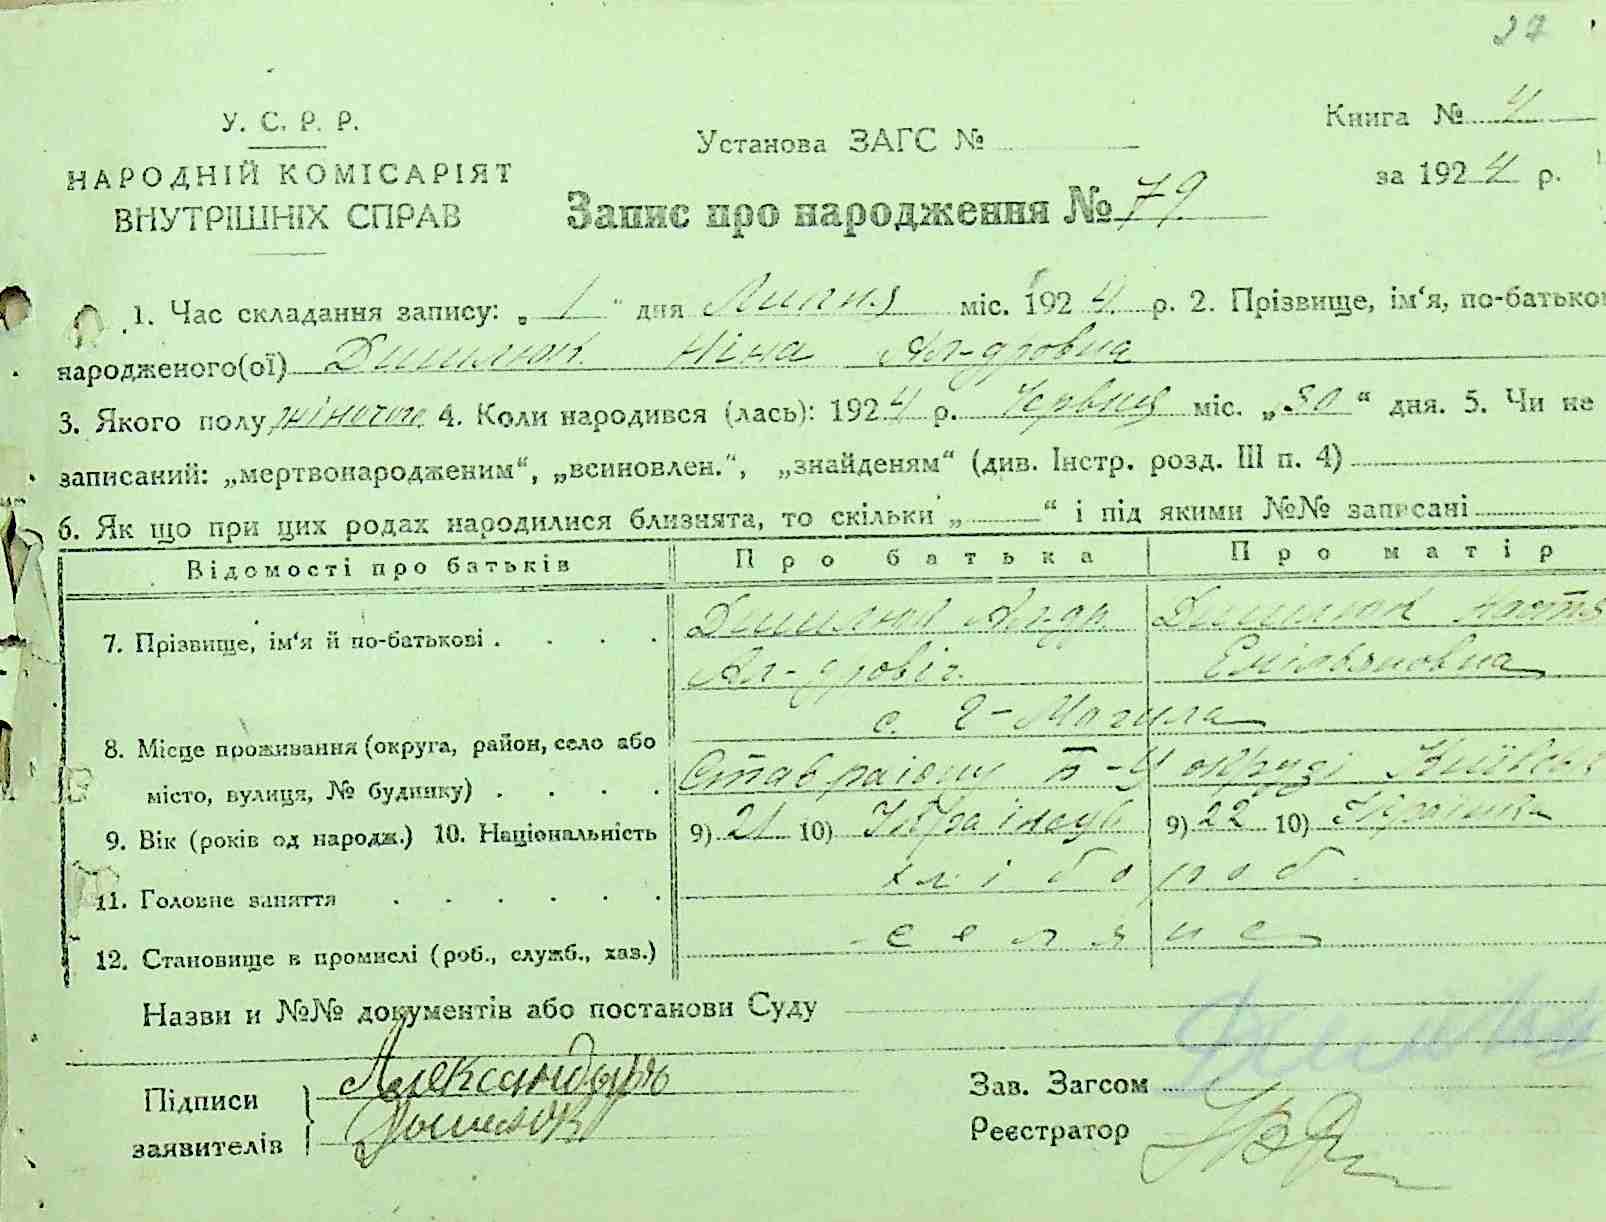 27
У. С. Р. Р.
НАРОДНІЙ КОМІСАРІЯТ
ВНУТРІШНІХ СПРАВ
Установа ЗАГС №
Книга № 4
за 1924 р.
Запис про народження № 79
1. Час складання запису: „1" дня Липня міс. 1924 р. 2. Прізвище, ім'я, по-батьков
народженого(ої) Дишлюк Ніна Ал-дровна
3. Якого полу жіночого 4. Коли народився (лась): 1924 р. Червня міс. „30" дня. 5. Чи не
записаний: „мертвонародженим", „всиновлен.", „знайденям" (див. Інстр. розд. III п. 4)
6. Як що при цих родах народилися близнята, то скільки „ " і під якими №№ записані
Відомості про батьків Про батька Про матір
7. Прізвище, ім'я й по-батькові . . . . Дишлюк Ал-др Дишлюк Настя
Ал-дровіч Еміляновна
с. Могила
8. Місце проживання (округа, район, село або
Став району Б-Ц округі Київськ
місто, вулиця, № будинку) . . . .
9. Вік (років од народж.) 10. Національність 9) 21 10) Українець 9) 22 10) Українка
11. Головне заняття . . . . . . хлібороб.
12. Становище в промислі (роб., служб., хаз.) селяне
Назви и №№ документів або постанови Суду
Підписи
заявителів
Александырь
Дышлюк
Зав. Загсом
Реєстратор